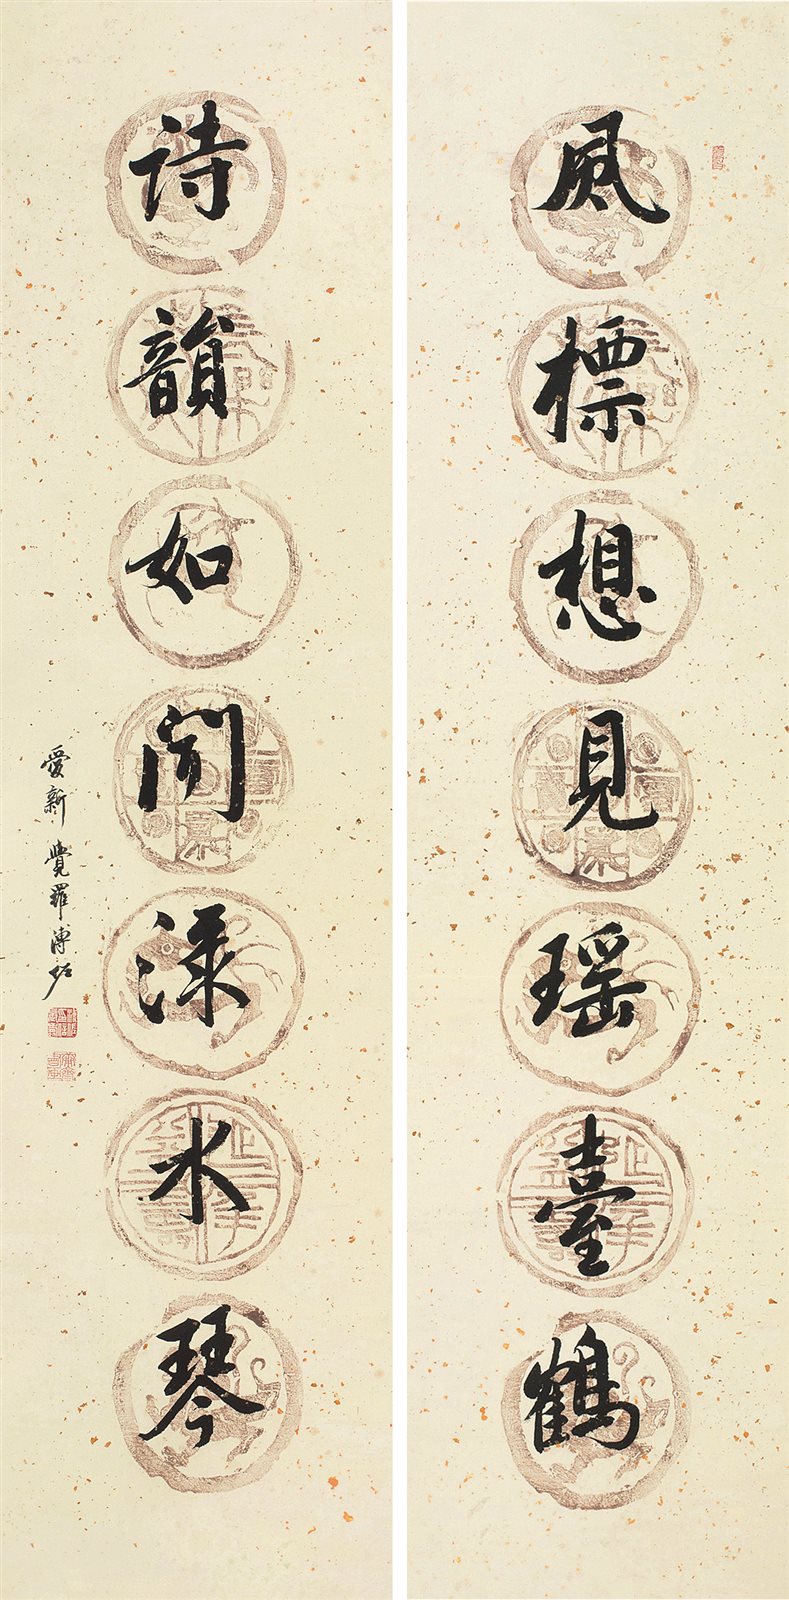 風標想見瑤臺鶴
詩韻如聞淥水琴
愛新覺羅溥佐